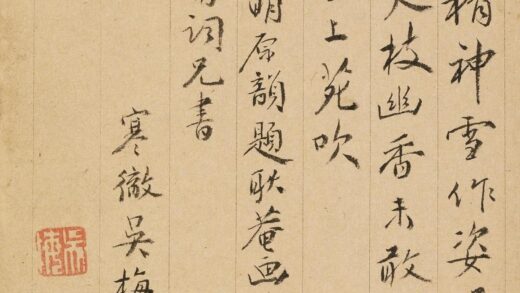 精神雪作姿
枝幽香未敢
上苑吹
原韻題耿菴画
詞兄書
寒徹吳梅